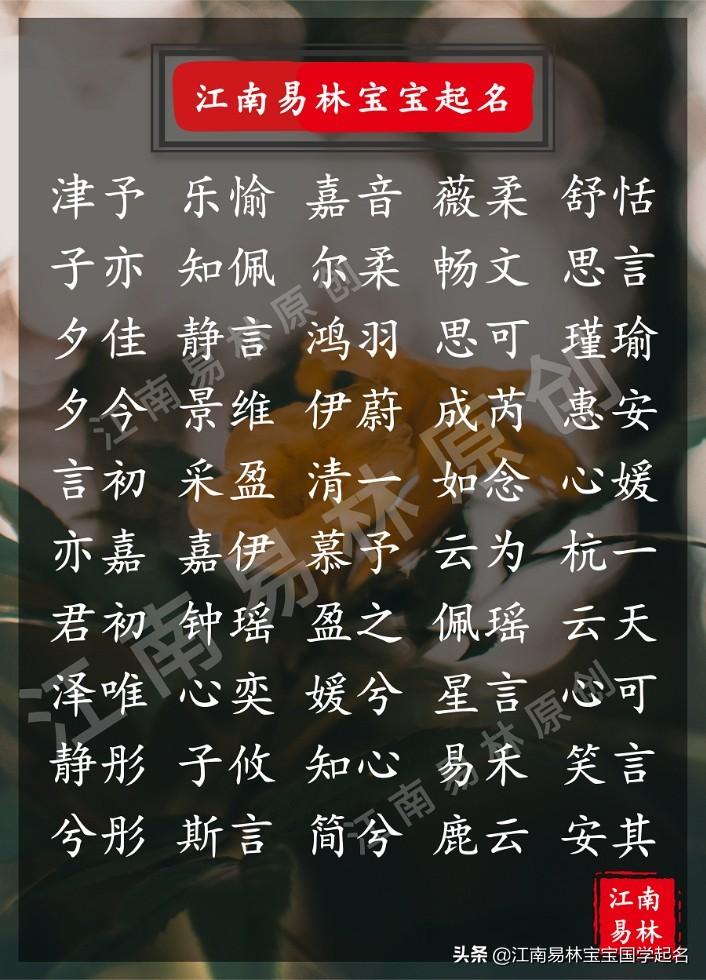 江南易林宝宝起名
津予 乐愉 嘉音 薇柔 舒恬
子亦 知佩 尔柔 畅文 思言
夕佳 静言 鸿羽 思可 瑾瑜
夕今 景维 伊蔚 成芮 惠安
言初 采盈 清一 如念 心媛
亦嘉 嘉伊 慕予 云为 杭一
君初 钟瑶 盈之 佩瑶 云天
泽唯 心奕 媛兮 星言 心可
静彤 子攸 知心 易禾 笑言
兮彤 斯言 简兮 鹿云 安其
江南易林原创
江南易林原创
江南易林原创
江南
易林
头条 @江南易林宝宝国学起名